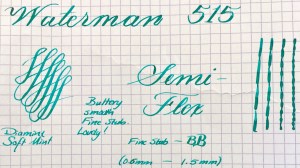 Waterman 515
Semi-
Flex
Buttery
smooth
Fine Stub.
Lovely!
Diamine
Soft Mint
Fine Stub - BB
(0.6mm - 1.5mm)